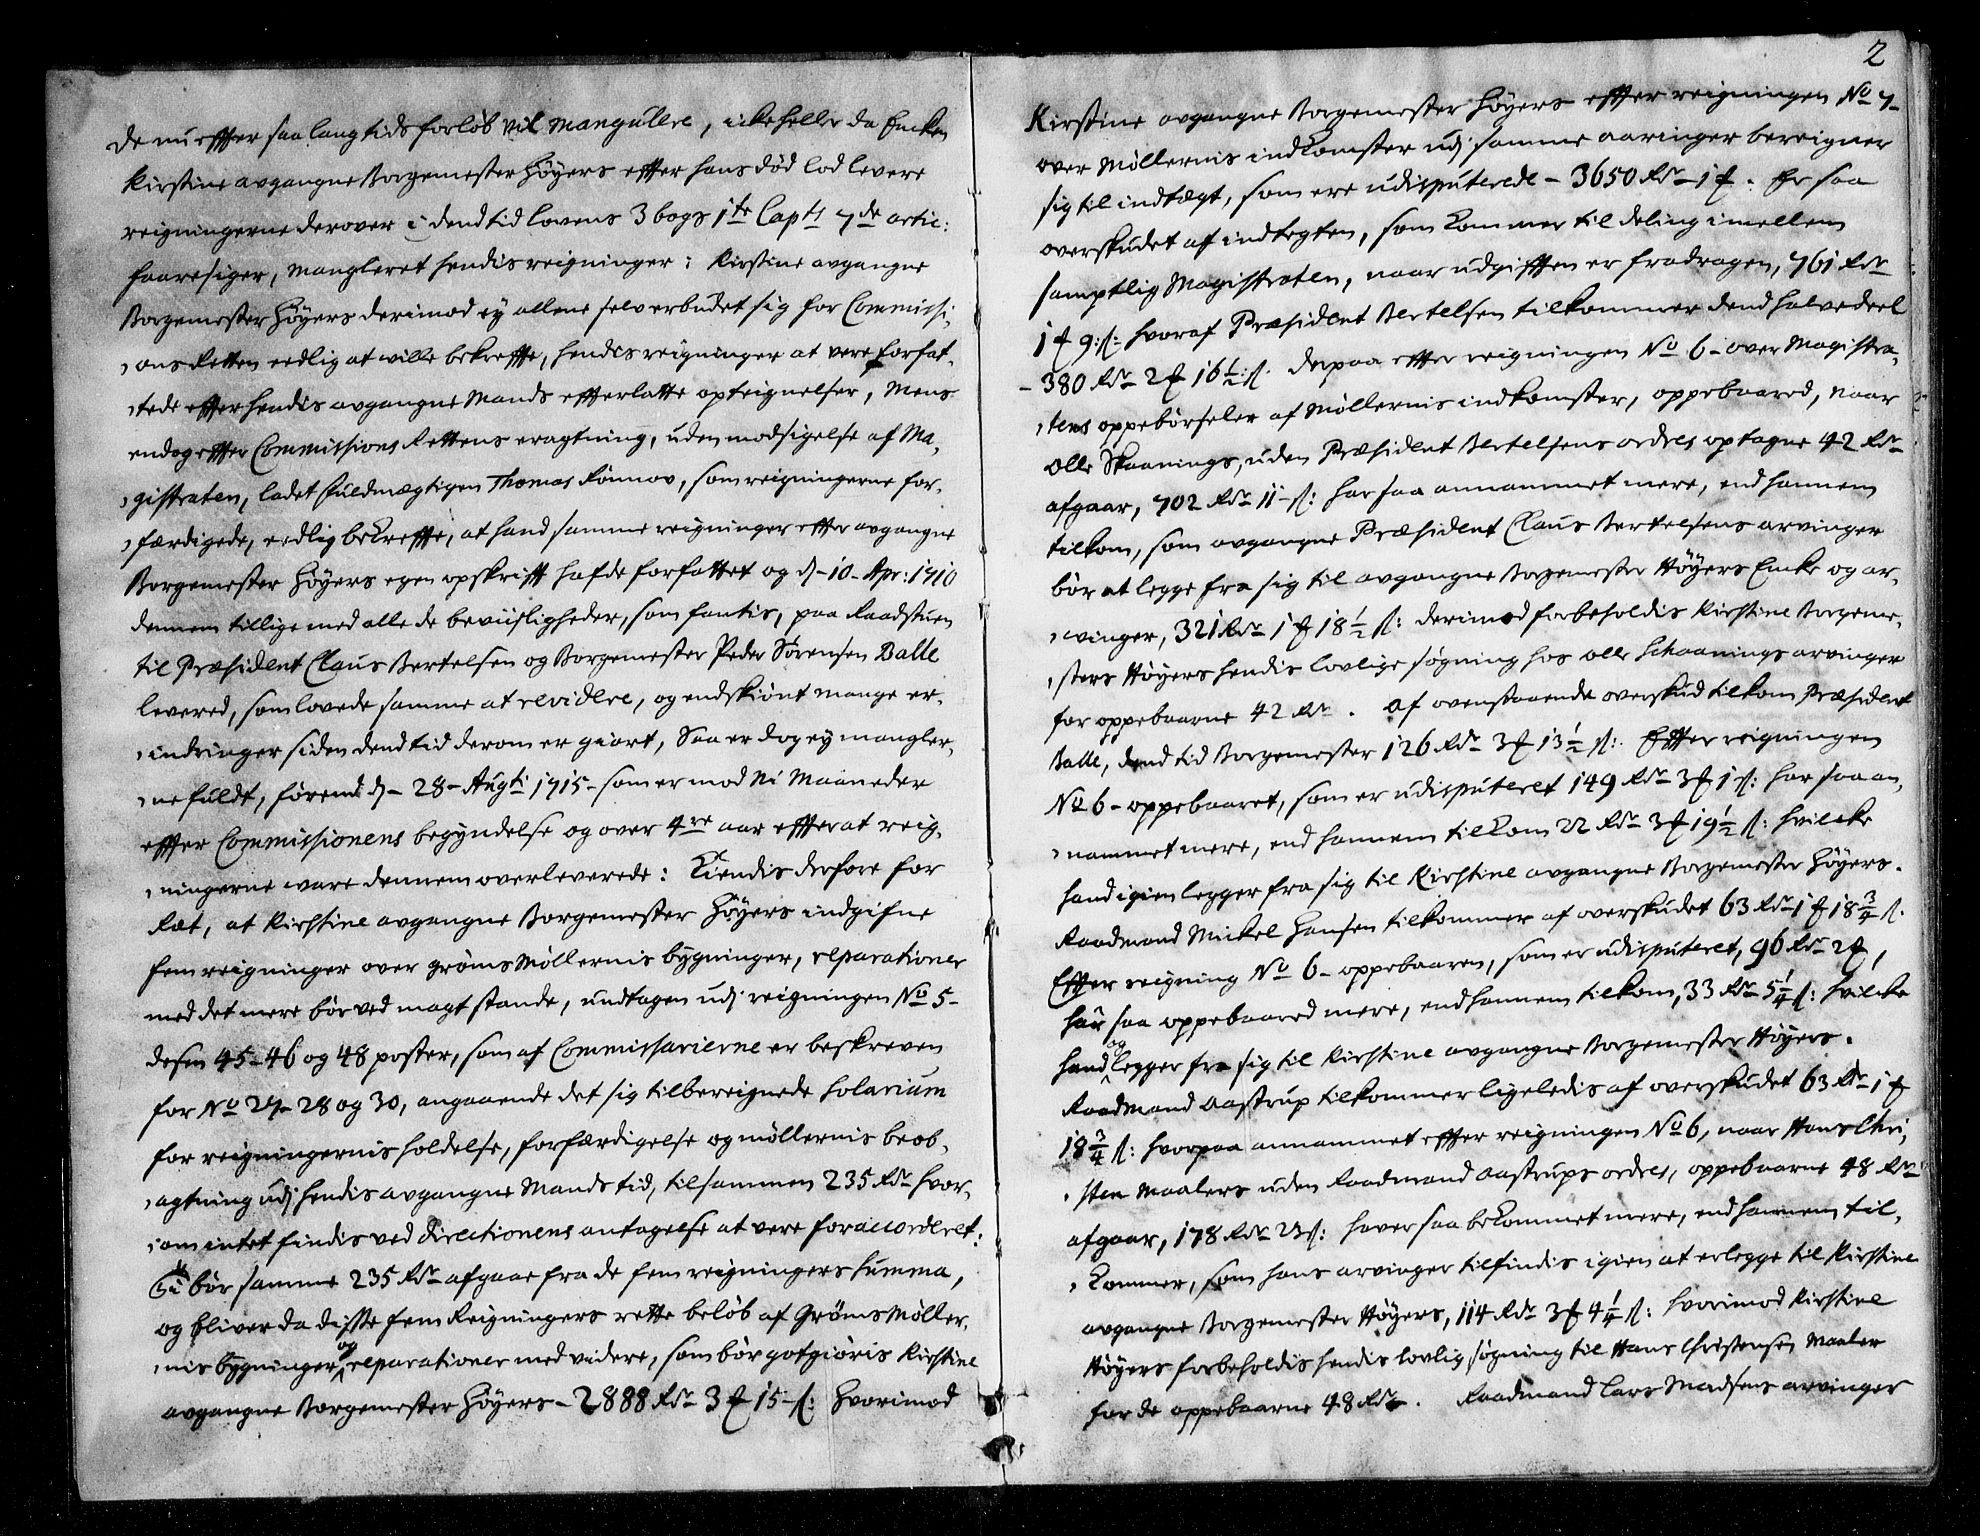 de nu effter saa lang tids forløb vil mangullere, icke heller da Encken
Kirstine avgangne Borgemester Høyers effter hans død lod levere
reigningerne derover i dend tid lovens 3 bogs 1te Capts 7de artic:
foaresiger, mangleret hendis reigninger; Kirstine avgangne
Borgemester Høyers derimod ey allene selv erbudet sig for Commissi,
,ons Retten eedlig at wille bekreffte, hendis reigninger at vere forfat,
,tede effter hendis avgangne Mands effterlatte opteignelser, Mens
endog effter Commissions Rettens eragtning, uden modsigelse af Ma,
,gistraten, ladet fuldmægtigen Thomas Rønnov, som reigningerne for,
,færdigede, eedlig bekreffte, at hand samme reigninger effter avgangne
Borgemester Høyers egen opskrifft hafde forfattet og d- 10- Apr: 1710
dennem tillige med alle de beviisligheder, som fantis, paa Raadstuen
til Præsident Claus Bertelsen og Borgemester Peder Sørensen Balle
levered, som lovede samme at revidere, og endskiønt mange er,
,indringer siden dend tid derom er giort, Saa er dog ey mangler,
,ne fuldt, førend d- 28- Augti 1715- som er mod Ni Maaneder
effter Commissionens begyndelse og over 4re aar effter at reig,
,ningerne ware dennem overleverede: Kiendis derfore for
Ræt, at Kirstine avgangne Borgemester Høyers indgifne
fem reigninger over grøms Møllernis bygninger, reparationer
med det mere bør ved magt stande, undtagen udj reigningen No 5-
desen 45- 46 og 48 poster, som af Commissarierne er beskreven
for No 27- 28 og 30, angaaende det sig tilbereignede Solarium
for reigningernis holdelse, forfærdigelse og møllernis beob,
,agtning udj hendis avgangne Mands tid, tilsammen 235 Rdr hvor,
,om intet findis ved directionens antagelse at vere foraccorderet:
bør samme 235 Rdr afgaae fra de fem reigningers summa,
og bliver da disse fem Reigningers rette beløb af Grøms Møller,
,nis bygninger og reparationer med videre, som bør gotgiøris Kirstine
avgangne Borgemester Høyers- 2888 Rdr 3 ₰ 15- s: Hvorimod
2
Kirstine avgangne Borgemester Høyers effter reigningen No 7-
over Møllernis indkomster udj samme aaringer bereigner
sig til indtægt, som ere udisputerede- 3650 Rdr- 1 ₰. Er saa
overskudet af indtegten, som kommer til deling imellem
samptlig Magistraten, naar udgifften er fradragen, 761 Rdr
1 ₰ 9:s: hvoraf Præsident Bertelsen tilkommer dend halvedeel
- 380 Rdr 2 ₰ 16 1/2:s. derpaa effter reigningen No 6- over Magistra,
,tens oppebørseler af Møllernis indkomster, oppebaared, naar
Olle Skaanings, uden Præsident Bertelsens ordres optagne 42 Rdr
afgaar, 702 Rdr 11- s: har saa annammet mere, end hannem
tilkom, som avgangne Præsident Claus Bertelsens arvinger
bør at legge fra sig til avgangne Borgemester Høyers Encke og ar,
,winger, 321 Rdr 1 ₰ 18 1/2 s: derimod forbeholdis Kirstine Borgeme,
,sters Høyers hendis lovlige søgning hos Olle Schaanings arvinger
for oppebaarne 42 Rdr. af ovenstaaende overskud tilkom Præsident
Balle, dend tid Borgemester 126 Rdr 3 ₰ 13 1/2 s:. Effter reigningen
No 6- oppebaaret, som er udisputeret 149 Rdr 3 ₰ 1 s: har saa an,
,nammet mere, end hannem tilkom 22 Rdr 3 ₰ 19 1/2 s: hvilcke
hand igien legger fra sig til Kirstine avgangne Borgemester Høyers.
Raadmand Mickel Hansen tilkommer af overskudet 63 Rdr 1 ₰ 18 3/4 s.
Effter reigning No 6- oppebaaren, som er udisputeret, 96 Rdr 2 ₰,
har saa oppebaared mere, end hannem tilkom, 33 Rdr 5 1/4 s: hvilcke
hand og legger fra sig til Kirstine avgangne Borgemester Høyers.
Raadmand Aastrup tilkommer ligeledis af overskudet 63 Rdr 1 ₰
18 3/4 s: hvorpaa annammet effter reigningen No 6, naar Hans Chri,
,sten Maalers uden Raadmand Aastrups ordres, oppebaarne 48 Rdr
afgaar, 178 Rdr 23 s: haver saa bekommet mere, end hannem til,
,kommer, som hans arvinger tilfindis igien at erlegge til Kirstine
avgangne Borgemester Høyers, 114 Rdr 3 ₰ 4 1/4 s: hvorimod Kirstine
Høyers forbeholdis hendis lovlig søgning til Hans Christensen Maaler
for de oppebaarne 48 Rdr. Raadmand Lars Madsens arvinger